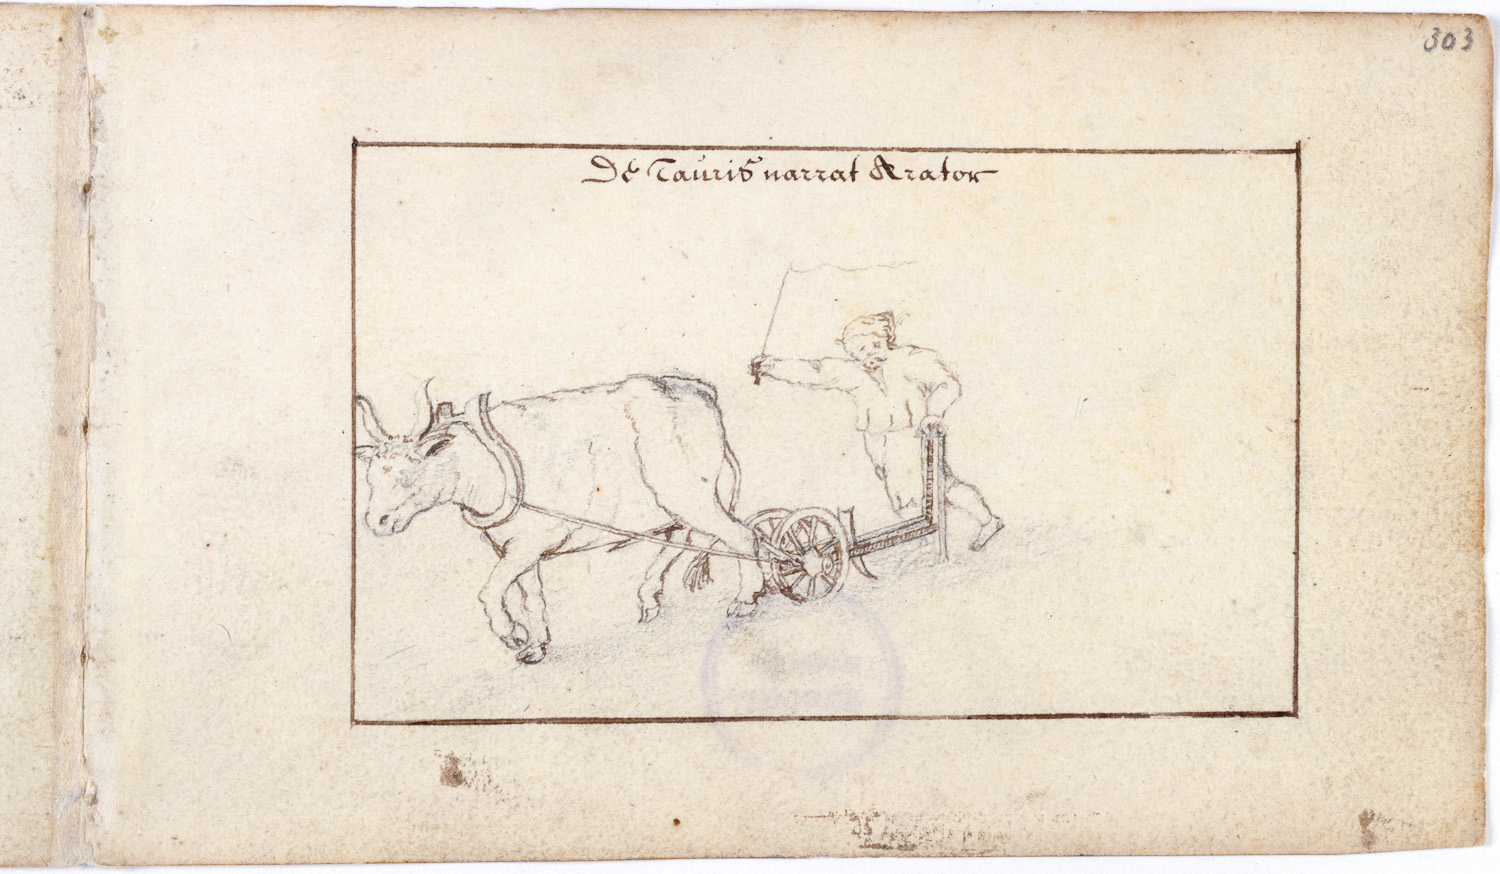 303
De Tauris narrat Arator